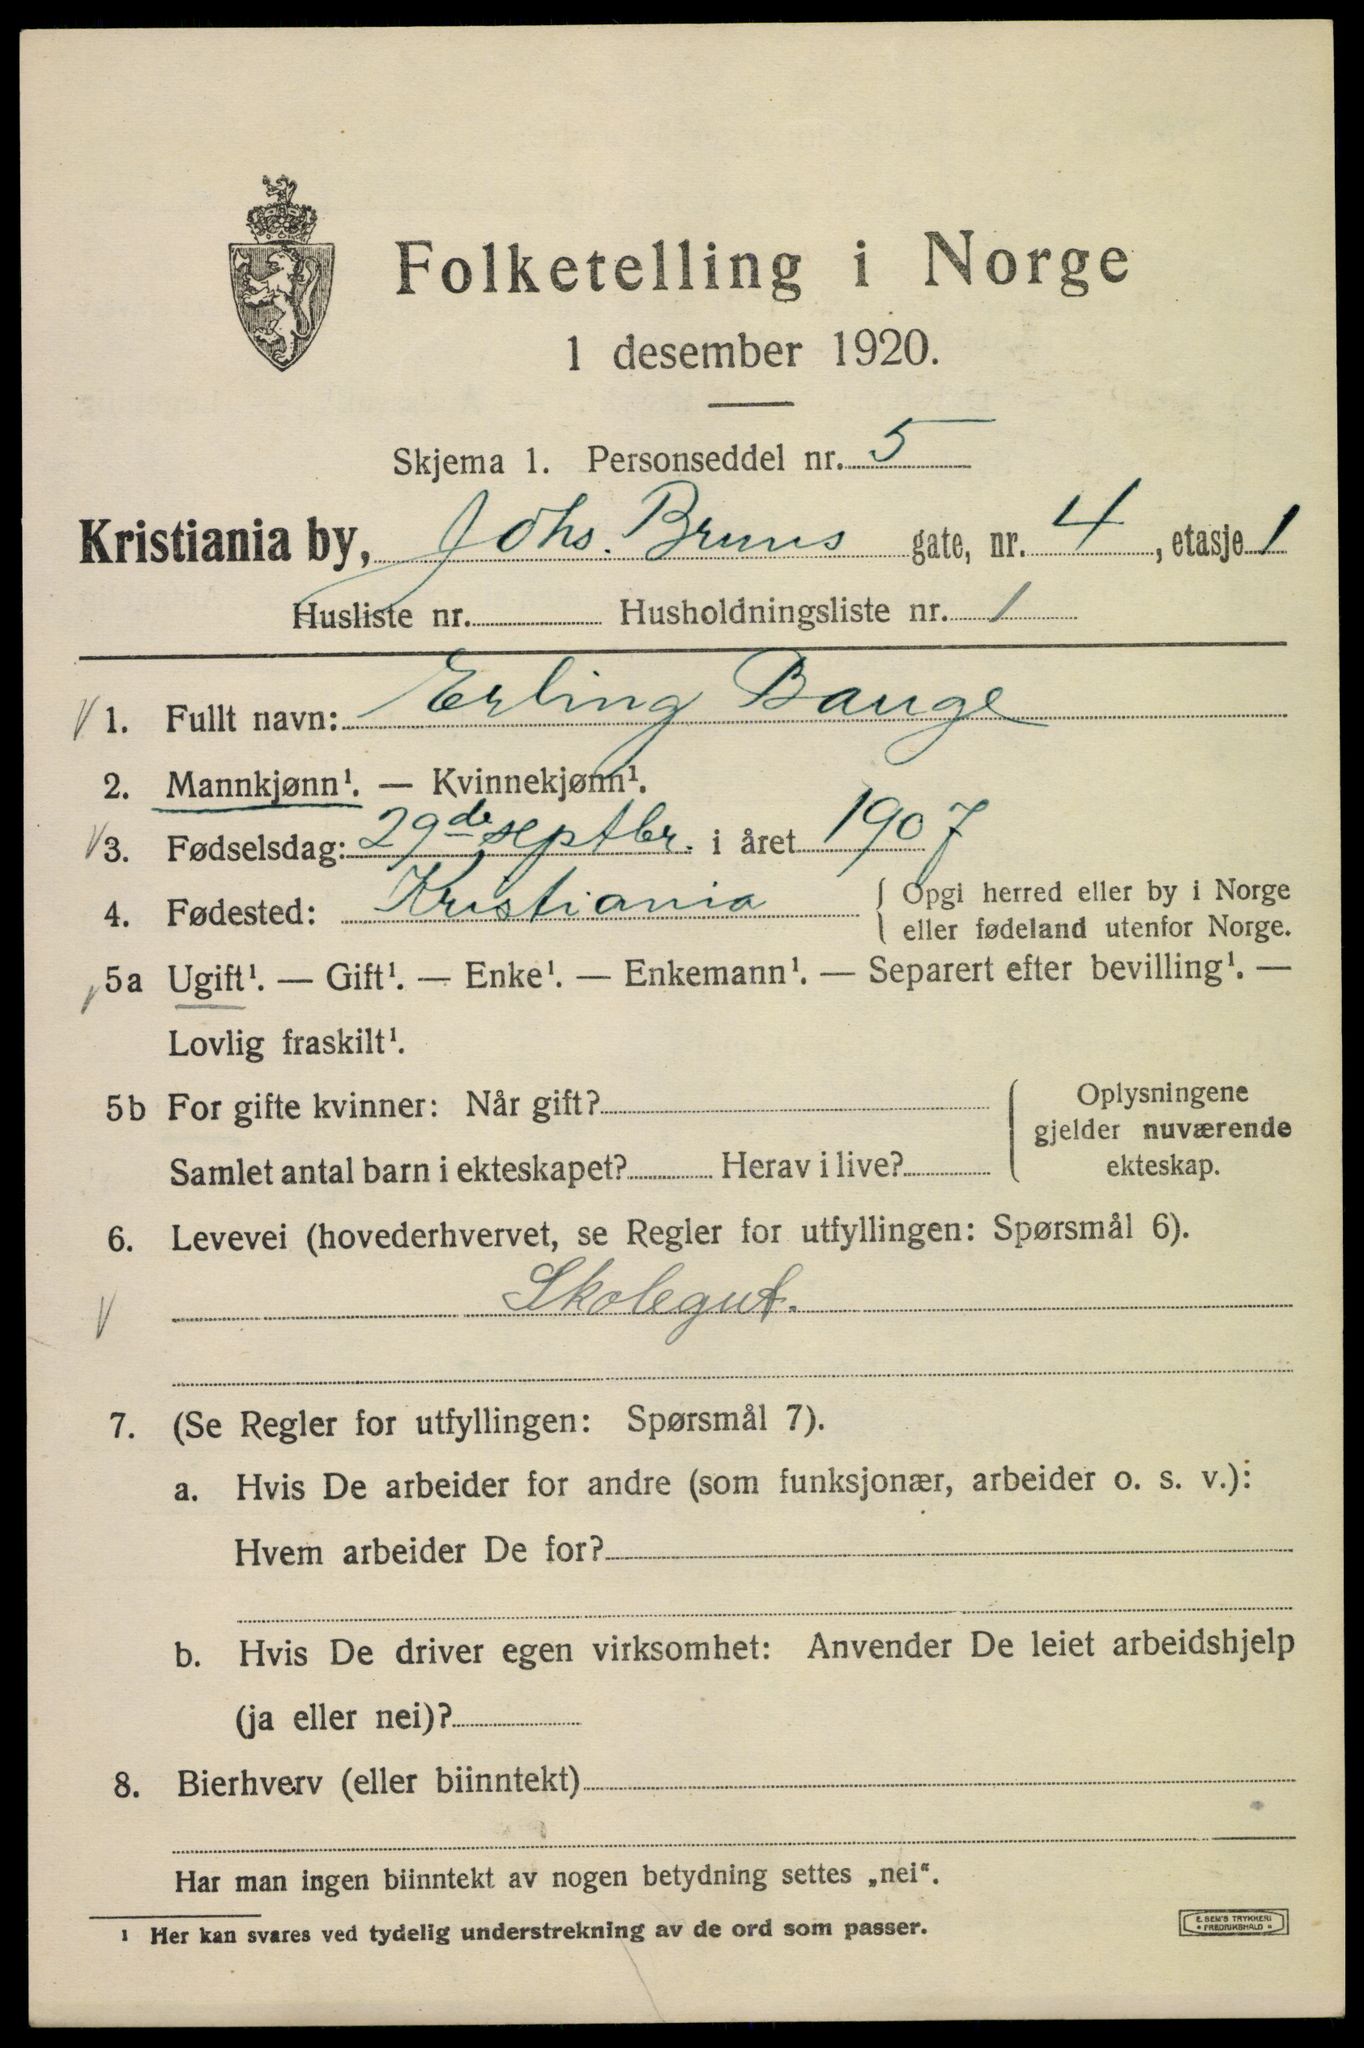 Folketelling i Norge
1 desember 1920.
Skjema 1. Personseddel nr. 5
Kristiania by, Johs. Bruns gate, nr. 4, etasje 1
Husliste nr. Husholdningsliste nr. 1
1. Fullt navn: Erling Bauge
2. Mannkjønn¹. — Kvinnekjønn¹.
3. Fødselsdag: 29de septbr. i året 1907
4. Fødested: Kristiania { Opgi herred eller by i Norge
eller fødeland utenfor Norge.
5a Ugift¹. — Gift¹. — Enke¹. — Enkemann¹. — Separert efter bevilling¹. —
Lovlig fraskilt¹.
5b For gifte kvinner: Når gift? { Oplysningene
gjelder nuværende
Samlet antal barn i ekteskapet? Herav i live? ekteskap.
6. Levevei (hovederhvervet, se Regler for utfyllingen: Spørsmål 6).
Skolegut.
7. (Se Regler for utfyllingen: Spørsmål 7).
a. Hvis De arbeider for andre (som funksjonær, arbeider o. s. v.):
Hvem arbeider De for?
b. Hvis De driver egen virksomhet: Anvender De leiet arbeidshjelp
(ja eller nei)?
8. Bierhverv (eller biinntekt)
Har man ingen biinntekt av nogen betydning settes „nei“.
¹ Her kan svares ved tydelig understrekning av de ord som passer.
E. SEM'S TRYKKERI
* FREDRIKSHALD *